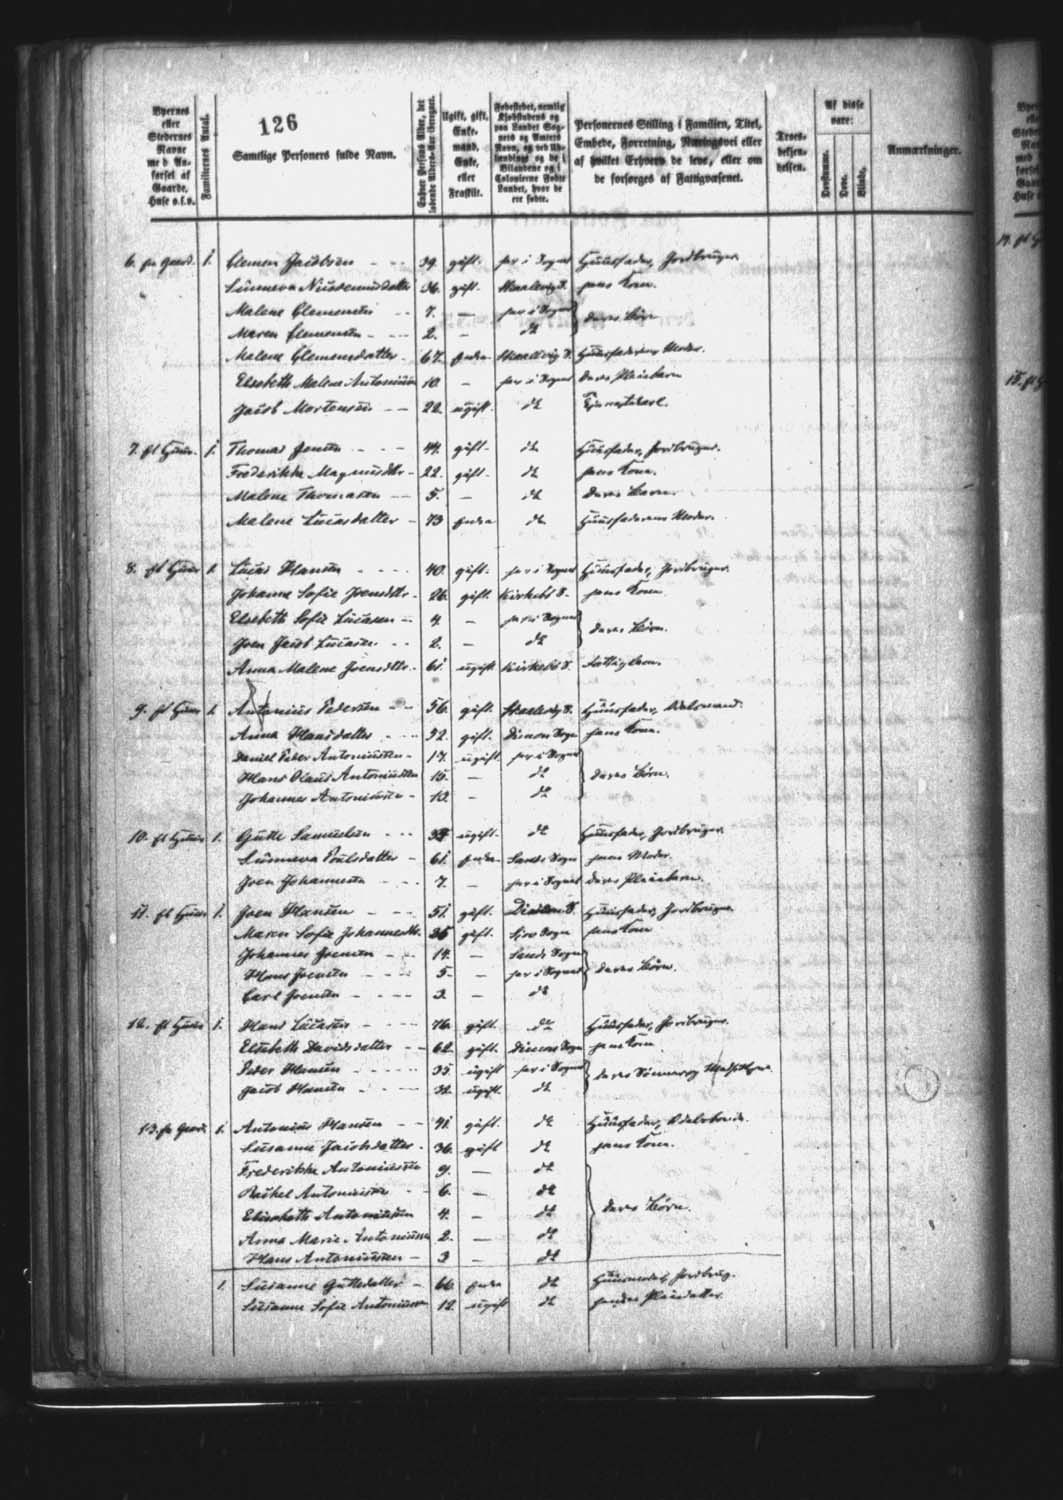 126
Byernes eller Stedernes Navne med Anførsel af Gaarde, Huse o.s.v.
Familiernes Antal.
Samtlige Personers fulde Navn.
Enhver Persons Alder, det løbende Alders-Aar iberegnet.
Ugift, gift, Enkemand, Enke, eller Fraskilt.
Fødestedet, nemlig Kjøbstadens og paa Landet Sognets og Amtets Navn, og ved Udlændinge og de i Bilandene og i Colonierne Fødte Landet, hvor de ere fødte.
Personernes Stilling i Familien, Titel, Embede, Forretning, Næringsvei eller af hvilket Erhverv de leve, eller om de forsørges af Fattigvæsenet.
Troesbekjendelsen.
Af disse vare:
Døvstumme.
Døve.
Blinde.
Anmærkninger.
6. 1. Clemen Jacobsen 39. gift. her i Sognet Huusfader, Jordbruger
36. gift. hans Kone.
Malene Clemensen 7. — her i Sognet deres Børn
Maren Clemensen 2. — dt
Malene Clemensdatter 67. Enke Huusfaderens Moder.
Elsebeth Malene Antoniusen 10. — her i Sognet deres Pleiebarn
Jacob Mortensen 22. ugift. dt Tjenestekarl.
7. 1. Thomas Jensen 44. gift. dt Huusfader, Jordbruger.
Frederikke Magnusdtr 22. gift. dt hans Kone.
Malene Thomasen 5. — dt deres Barn.
Malene Lucasdatter 73 Enke dt Huusfaderens Moder.
8. 1. Lucas Hansen 40. gift. her i Sognet Huusfader, Jordbruger
Johanne Sofie Joensdtr 26. gift. Kirkebø S. hans Kone.
Elsebeth Sofie Lucasen 4. — her i Sognet deres Børn.
Joen Jacob Lucasen 2. — dt
Anna Malene Joensdtr 61. ugift Kirkebø S. Fattiglem.
9. 1. Antonius Pedersen 56. gift. Huusfader,
Anna Hansdatter 52. gift. Dimon Sogn hans Kone.
Daniel Peder Antoniussen 17. ugift her i Sognet
Hans Claus Antoniussen 15. — dt deres Børn.
Johannes Antoniussen 12. — dt
10. 1. Gutte Samuelsen ugift. dt Huusfader, Jordbruger
Sunneva Poulsdatter 61. Enke Sands Sogn hans Moder.
Joen Johannesen 7. — her i Sognet deres Pleiebarn.
11. 1. Joen Hansen 51. gift. Dimon S. Huusfader, Jordbruger
Maren Sofie Johannesdtr. gift. Sogn hans Kone
Johannes Joensen 14. — Sands Sogn
Hans Joensen 5. — her i Sognet deres Børn.
Carl Joensen 3. — dt
12. 1. Hans Lucasen 76. gift. dt Huusfader, Jordbruger.
Elsebeth Davidsdatter 62. gift. Dimons Sogn hans Kone
Peder Hansen 35. ugift her i Sognet deres Sønner og
Jacob Hansen 32. ugift. dt
13. 1. Antonius Hansen 41. gift. dt Huusfader,
Susanne Jacobsdatter 36. gift dt hans Kone.
Frederikke Antoniussen 9. — dt
Rachel Antoniussen 6. — dt
Elisabeth Antoniussen 4. — dt deres Børn.
Anna Marie Antoniussen 2. — dt
Hans Antoniussen 3 — dt
1. Susanne Guttesdatter 66. Enke dt Huusmoder, Jordbrug.
Susanne Sofie Antoniussen 12. ugift dt hendes Pleiedatter.